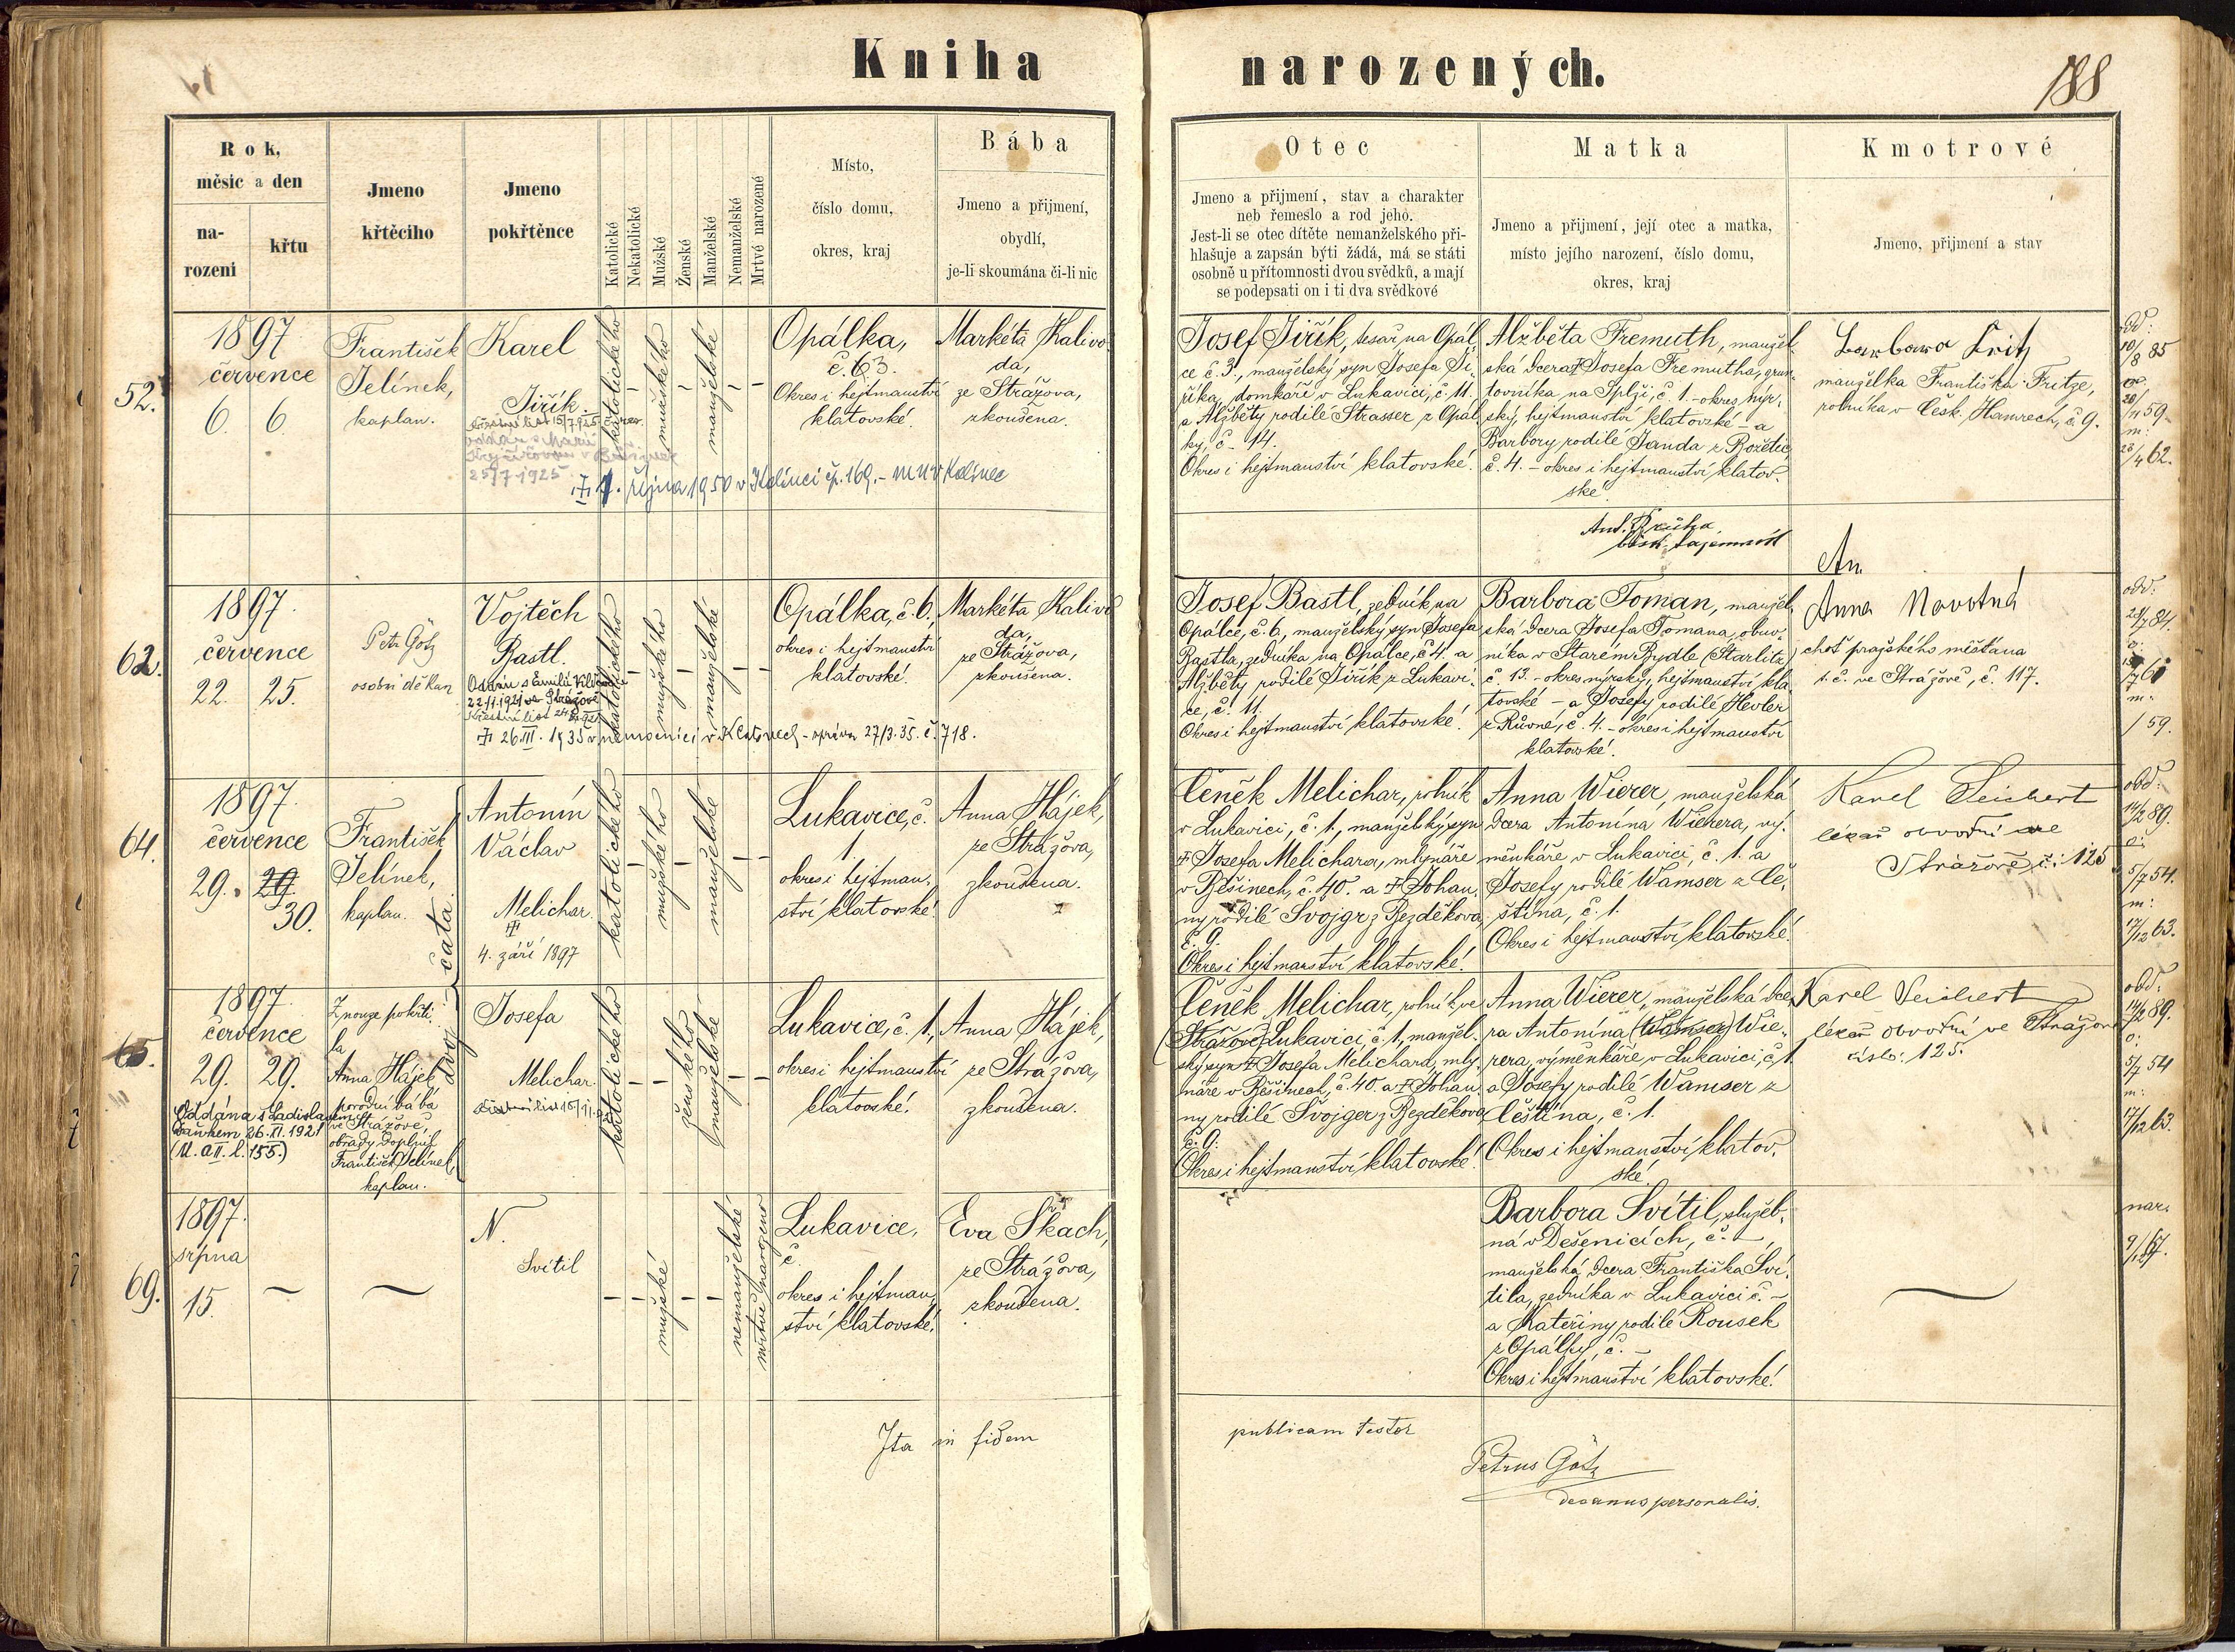 Kniha narozených.
188
Rok,
měsíc a den
na-
rození
křtu
Jmeno
křtěcího
Jmeno
pokřtěnce
Katolické
Nekatolické
Mužské
Ženské
Manželské
Nemanželské
Mrtvé narozené
Místo,
číslo domu,
okres, kraj
Bába
Jmeno a přijmení,
obydlí,
je-li skoumána či-li nic
Otec
Jmeno a přijmení, stav a charakter
neb řemeslo a rod jeho.
Jest-li se otec dítěte nemanželského při-
hlašuje a zapsán býti žádá, má se státi
osobně u přítomnosti dvou svědků, a mají
se podepsati on i ti dva svědkové
Matka
Jmeno a přijmení, její otec a matka,
místo jejího narození, číslo domu,
okres, kraj
Kmotrové
Jmeno, přijmení a stav
52.
1897
července
6. 6.
František
Jelínek,
kaplan.
Karel
Jiřík.
25/7 1925
katolického
mužského
manželské
Opálka,
č. 63.
Okres i hejtmanství
klatovské.
Markéta Kalivo-
da,
ze Strážova,
zkoušena.
října 1950 v Kolinci čp. 169. - MNV Kolinec
Josef Jiřík, tesař na Opál-
ce č. 3., manželský syn Josefa Ji-
říka, domkáře v Lukavici, č. 11.
a Alžběty rodilé Strasser z Opál-
ky, č. 14.
Okres i hejtmanství klatovské.
Alžběta Fremuth, manžel-
ská dcera Josefa Fremutha, grun-
tovníka na Splži, č. 1. - okres nýr-
ský, hejtmanství klatovské - a
Barbory rodilé Janda z Božetic
č. 4. - okres i hejtmanství klatov-
ské.
Barbara Fritz
manželka Františka Fritze,
rolníka v Česk. Hamrech, č. 9.
odd:
10/8 85
28/11 59.
m:
23/4 62.
An.
62.
1897.
července
22. 25.
Petr Götz
osobní děkan
Vojtěch
Bastl.
22/11.1921 ve Strážově
26.III.1935 v nemocnici v Klatovech - zpráva 27/3.35. č. 718.
katolického
mužského
manželské
Opálka, č. 6.,
okres i hejtmanství
klatovské.
Markéta Kalivo-
da,
ze Strážova,
zkoušena.
Josef Bastl, zedník na
Opálce, č. 6., manželský syn Josefa
Bastla, zedníka na Opálce, č. 4. a
Alžběty rodilé Jiřík z Lukavi-
ce, č. 11.
Okres i hejtmanství klatovské.
Barbora Toman, manžel-
ská dcera Josefa Tomana, obuv-
níka v Starém Bydle (Starlitz)
č. 13. - okres nýrský, hejtmanství kla-
tovské - a Josefy rodilé Hevler
z Růvné, č. 4. - okres i hejtmanství
klatovské.
Anna Novotná
choť pražského měšťana
t. č. ve Strážově, č. 117.
odd:
m:
/59.
64.
1897.
července
29. 29.
30.
František
Jelínek,
kaplan.
Antonín
Václav
Melichar.
4. září 1897
dvojčata
katolického
mužského
manželské
Lukavice, č.
1.
okres i hejtman-
ství klatovské.
Anna Hájek,
ze Strážova,
zkoušena.
Čeněk Melichar, rolník
v Lukavici, č. 1., manželský syn
Josefa Melichara, mlynáře
v Běšinech, č. 40. a Johan-
ny rodilé Svojgr z Bezděkova
č. 9.
Okres i hejtmanství klatovské.
Anna Wierer, manželská
dcera Antonína Wierera, vý-
měnkáře v Lukavici, č. 1. a
Josefy rodilé Wamser z Če-
štína, č. 1.
Okres i hejtmanství klatovské.
Karel Seichert
lékař obvodní ve
Strážově č: 125
odd:
14/2 89.
5/7 54.
m:
17/12 63.
65.
1897.
července
29. 29.
Oddána s Ladislavem
Daňkem 26.XI.1921
Z nouze pokřti-
la
Anna Hájek
porodní bába
ve Strážově,
obřady doplnil
František Jelínek,
kaplan.
Josefa
Melichar.
katolického
ženského
manželské
Lukavice, č. 1,
okres i hejtmanství
klatovské.
Anna Hájek,
ze Strážova,
zkoušena.
Čeněk Melichar, rolník ve
(Strážově) Lukavici, č. 1, manžel-
ský syn Josefa Melichara, mly-
náře v Běšinech, č. 40. a Johan-
ny rodilé Švojger z Bezděkova
č. 9.
Okres i hejtmanství klatovské.
Anna Wierer, manželská dce-
ra Antonína (Wamser) Wie-
rera, výměnkáře v Lukavici, č. 1
a Josefy rodilé Wamser z
Čeština, č. 1.
Okres i hejtmanství klatov-
ské.
Karel Seichert
lékař obvodní ve Strážově
číslo: 125.
odd:
14/2 89.
o:
5/7 54
m:
17/12 63.
69.
1897.
srpna
15.
N.
Svítil
mužské
nemanželské
mrtvě narozené
Lukavice,
č.
okres i hejtman-
ství klatovské.
Eva Skach,
ze Strážova,
zkoušena.
Barbora Svítil, služeb-
ná v Dešenicích, č. -,
manželská dcera Františka Sví-
tila, zedníka v Lukavici č. -
a Kateřiny rodilé Rousek
z Opálky, č. -
Okres i hejtmanství klatovské.
nar.
Ita in fidem publicam testor
Petrus Götz
decanus personalis.